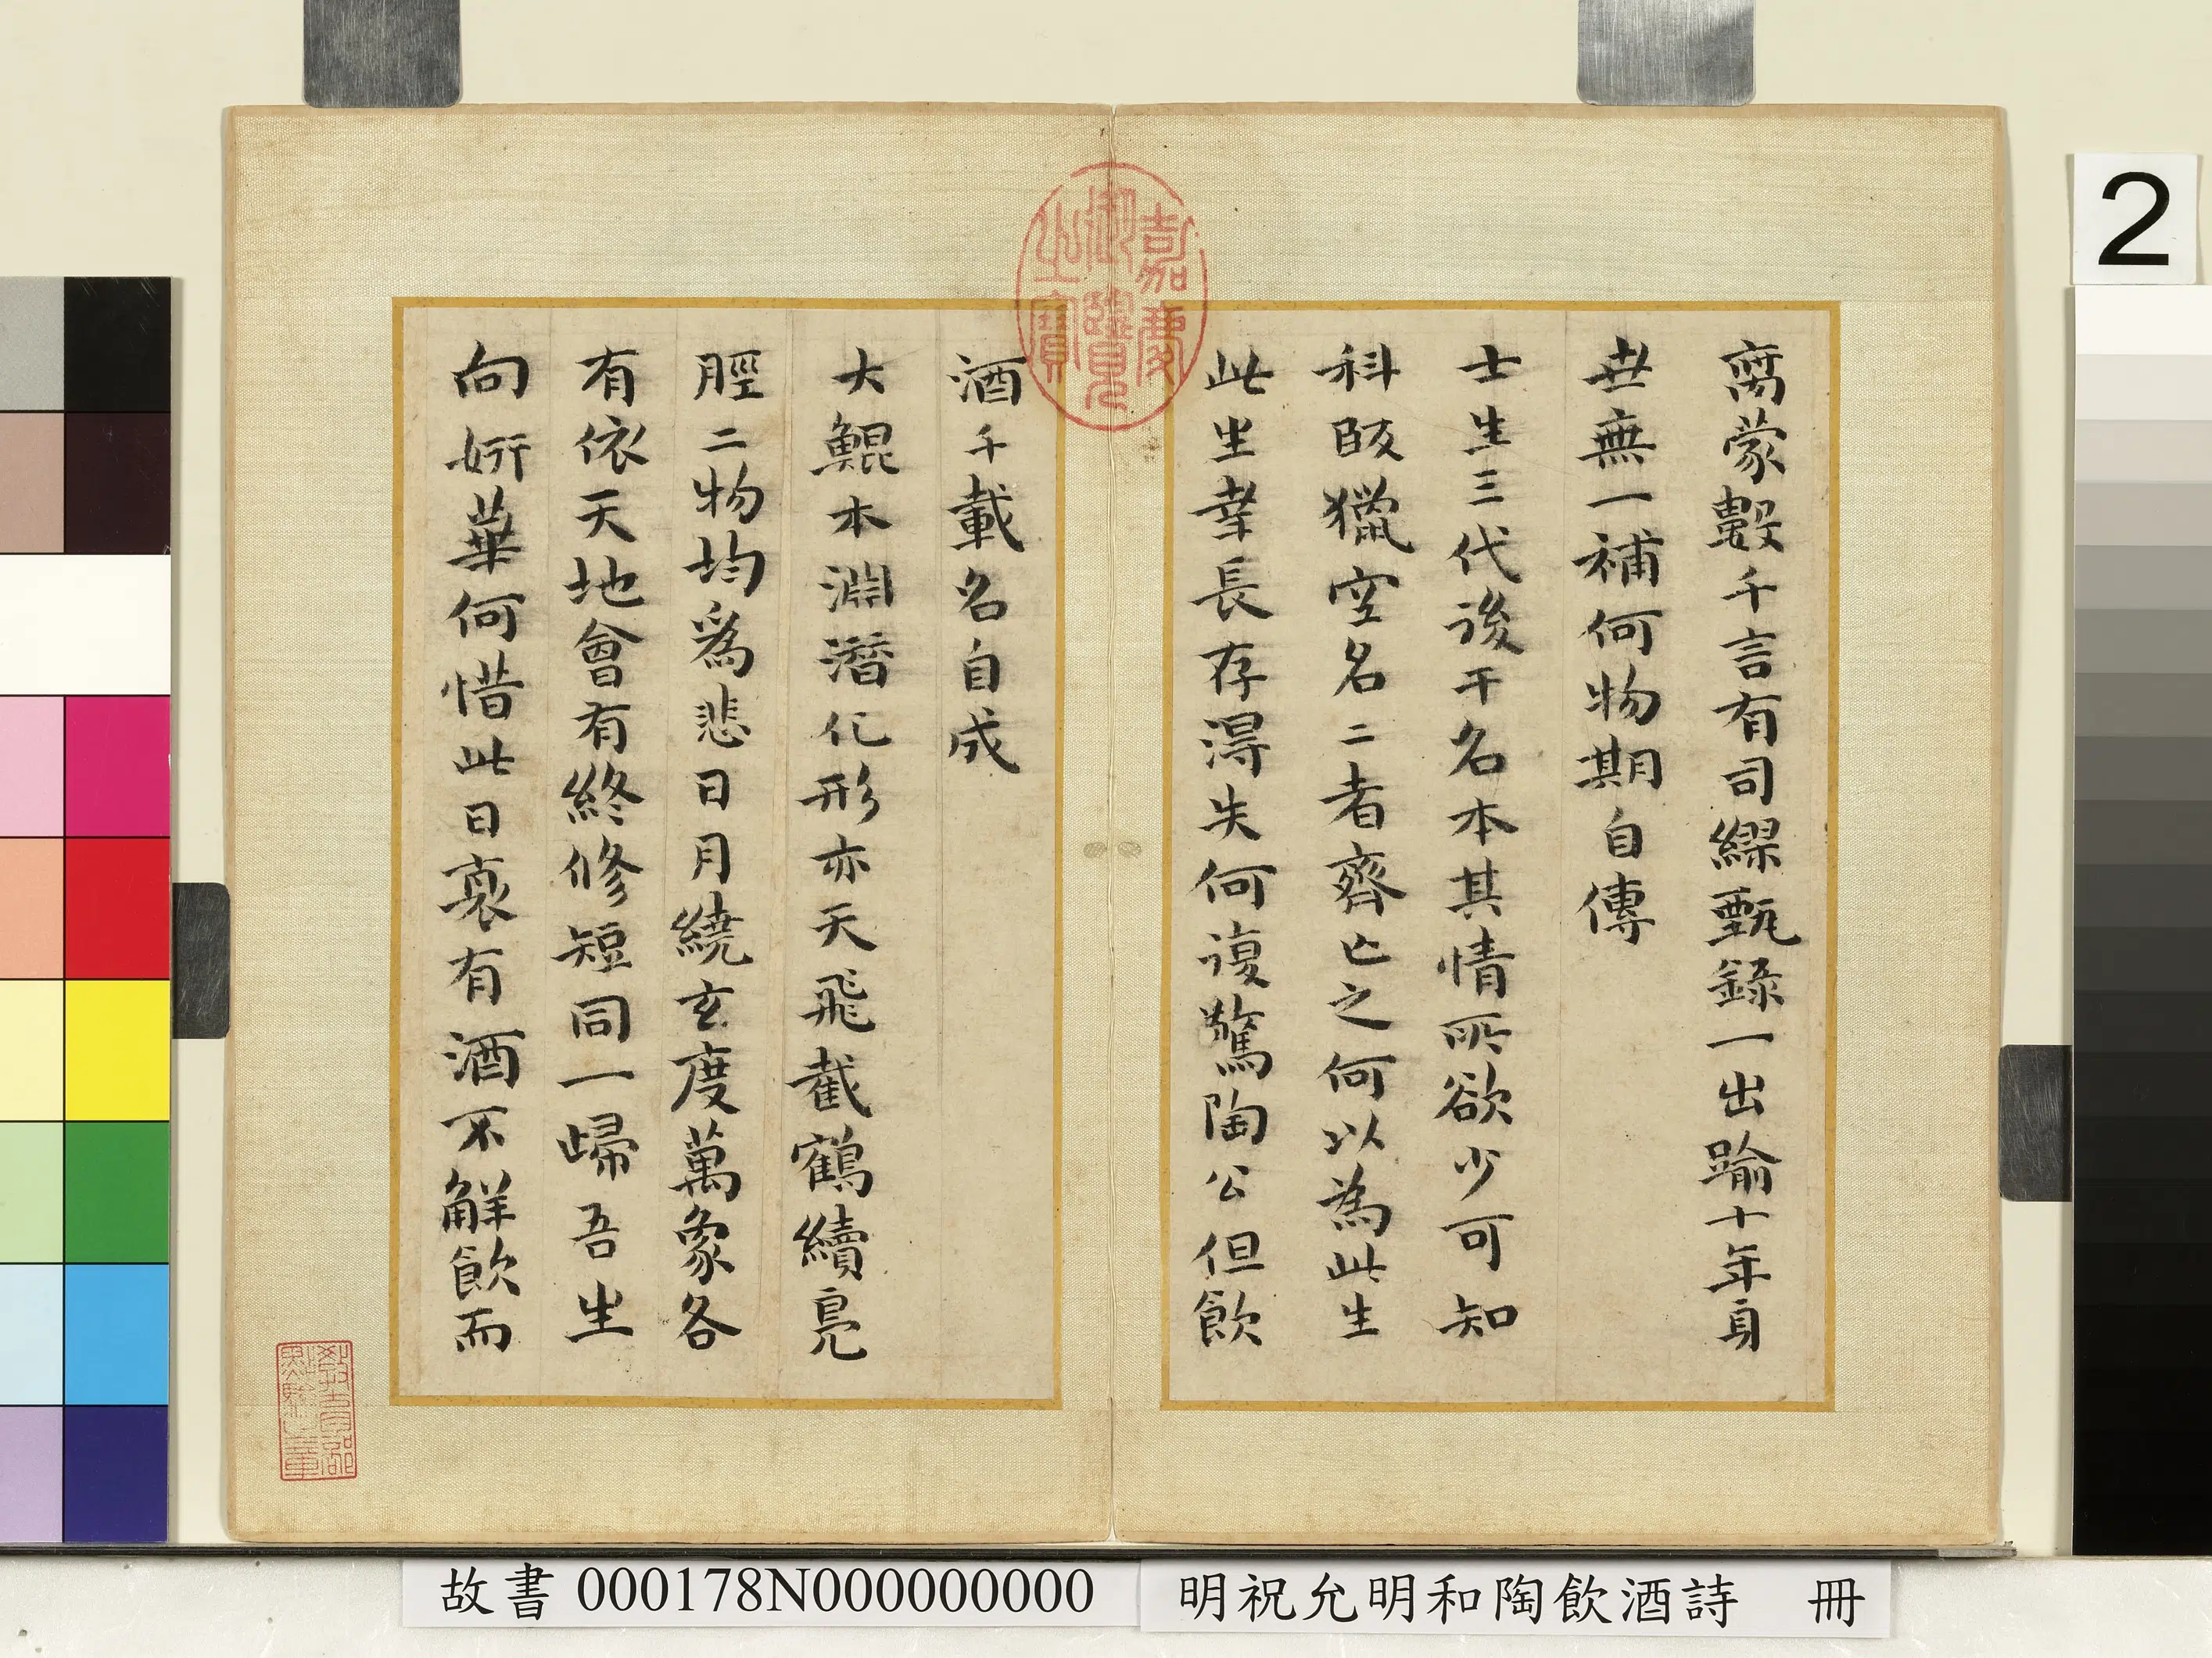 离蒙数千言有司繆甄錄一出踰十年身
世無一補何物期自傳
士生三代後干名本其情所欲少可知
科臤獵空名二者齊亡之何以為此生
此生幸長存得失何復驚陶公但飲
酒千載名自成
大鯤本淵潛化形亦天飛截鶴續鳧
脛二物均為悲日月繞玄度萬象各
有依天地會有終修短同一歸吾生
向妍華何惜此日衰有酒不解飲而
嘉慶御覽之寶
教育部點驗之章
2
故書 000178N000000000
明祝允明和陶飲酒詩 冊